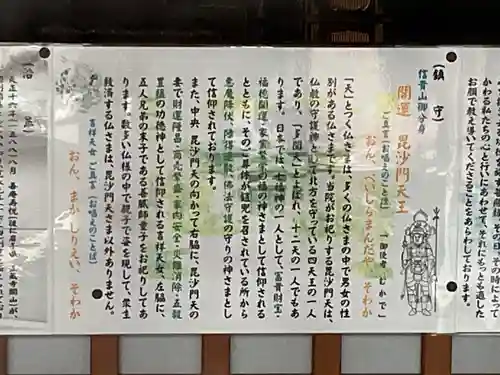 かわる私たちの心と行いにあわせて、それにもっとも適した
お顔で教え導いてくださることをあらわしております。
（鎮守）
信貴山御分身
開運 毘沙門天王
ご真言（お唱えのことば）
おん、べいしらまんだや、そわか
御使者 むかで
「天」とつく仏さまは、多くの仏さまの中で男女の性
別がある仏さまです。当院がお祀りする毘沙門天は、
仏教の守護神として北方を守っている四天王の一人
であり、「多聞天」とよばれ、十二天の一人でもあ
ります。日本では、七福神の一人として、富貴財宝・
福徳開運・家業繁栄の福の神さまとして信仰される
とともに、そのご身体が鎧兜を召されている所から
悪魔降伏・障碍退散・佛法守護の守りの神さまとし
て信仰されております。
また、中央 毘沙門天の向かって右脇に、毘沙門天の
妻で財運隆昌・商売繁盛・家内安全・災難消除・五穀
豊穣の功徳神として信仰される吉祥天女、左脇に、
五人兄弟の末子である善膩師童子をお祀りしてあ
ります。数多い仏様の中で親子で姿を現して、衆生
救済する仏さまは、毘沙門天さま以外ありません。
吉祥天女 ご真言（お唱えのことば）
おん、まか、しりえい、そわか